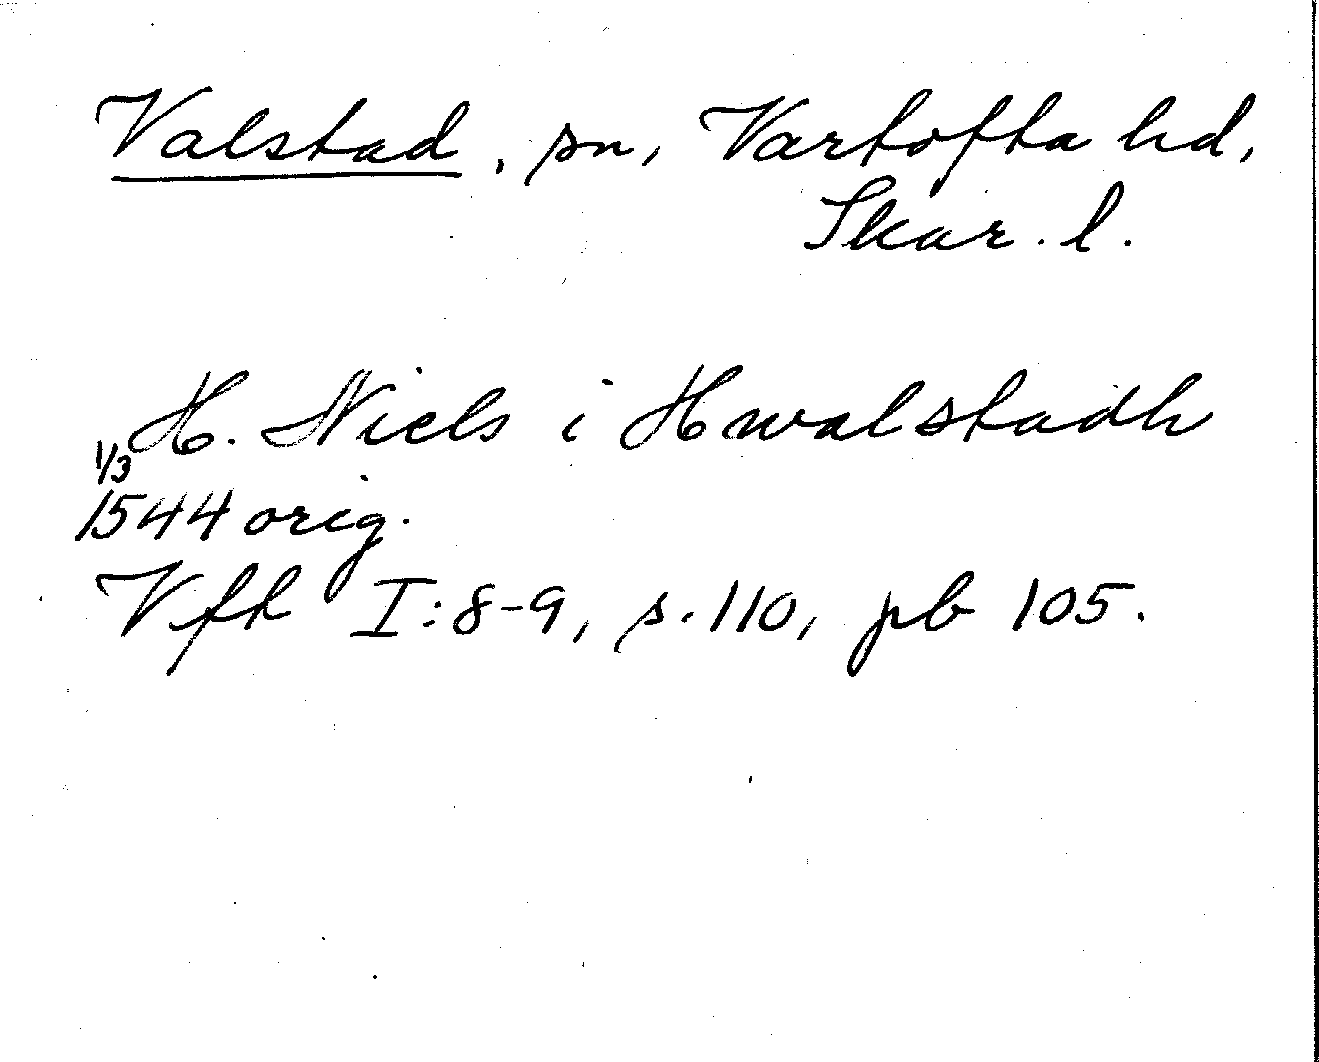 Valstad, sn, Vartofta hd,
Skar. l.
H. Niels i Hwalstadh
1/3
1544 orig.
Vfh I:8-9, s. 110, pb 105.